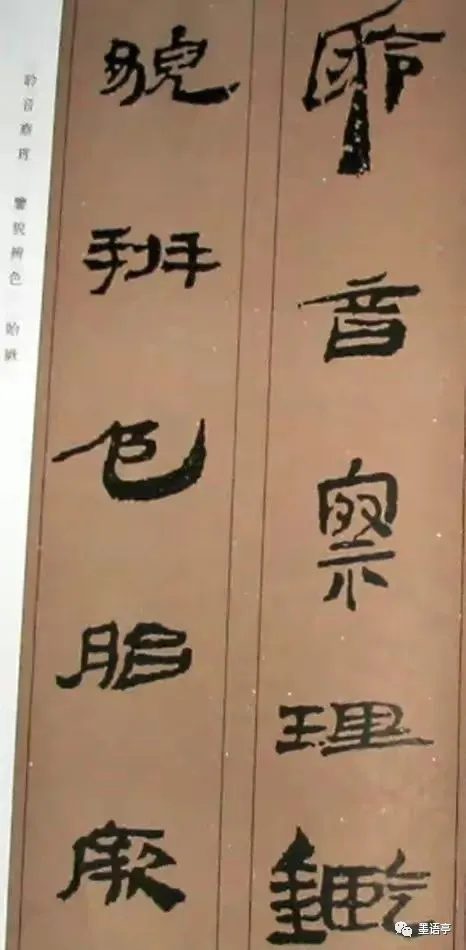 聆音察理鑑
貌辨色貽厥
聆音察理 鑒貌辨色 貽厥
墨语亭